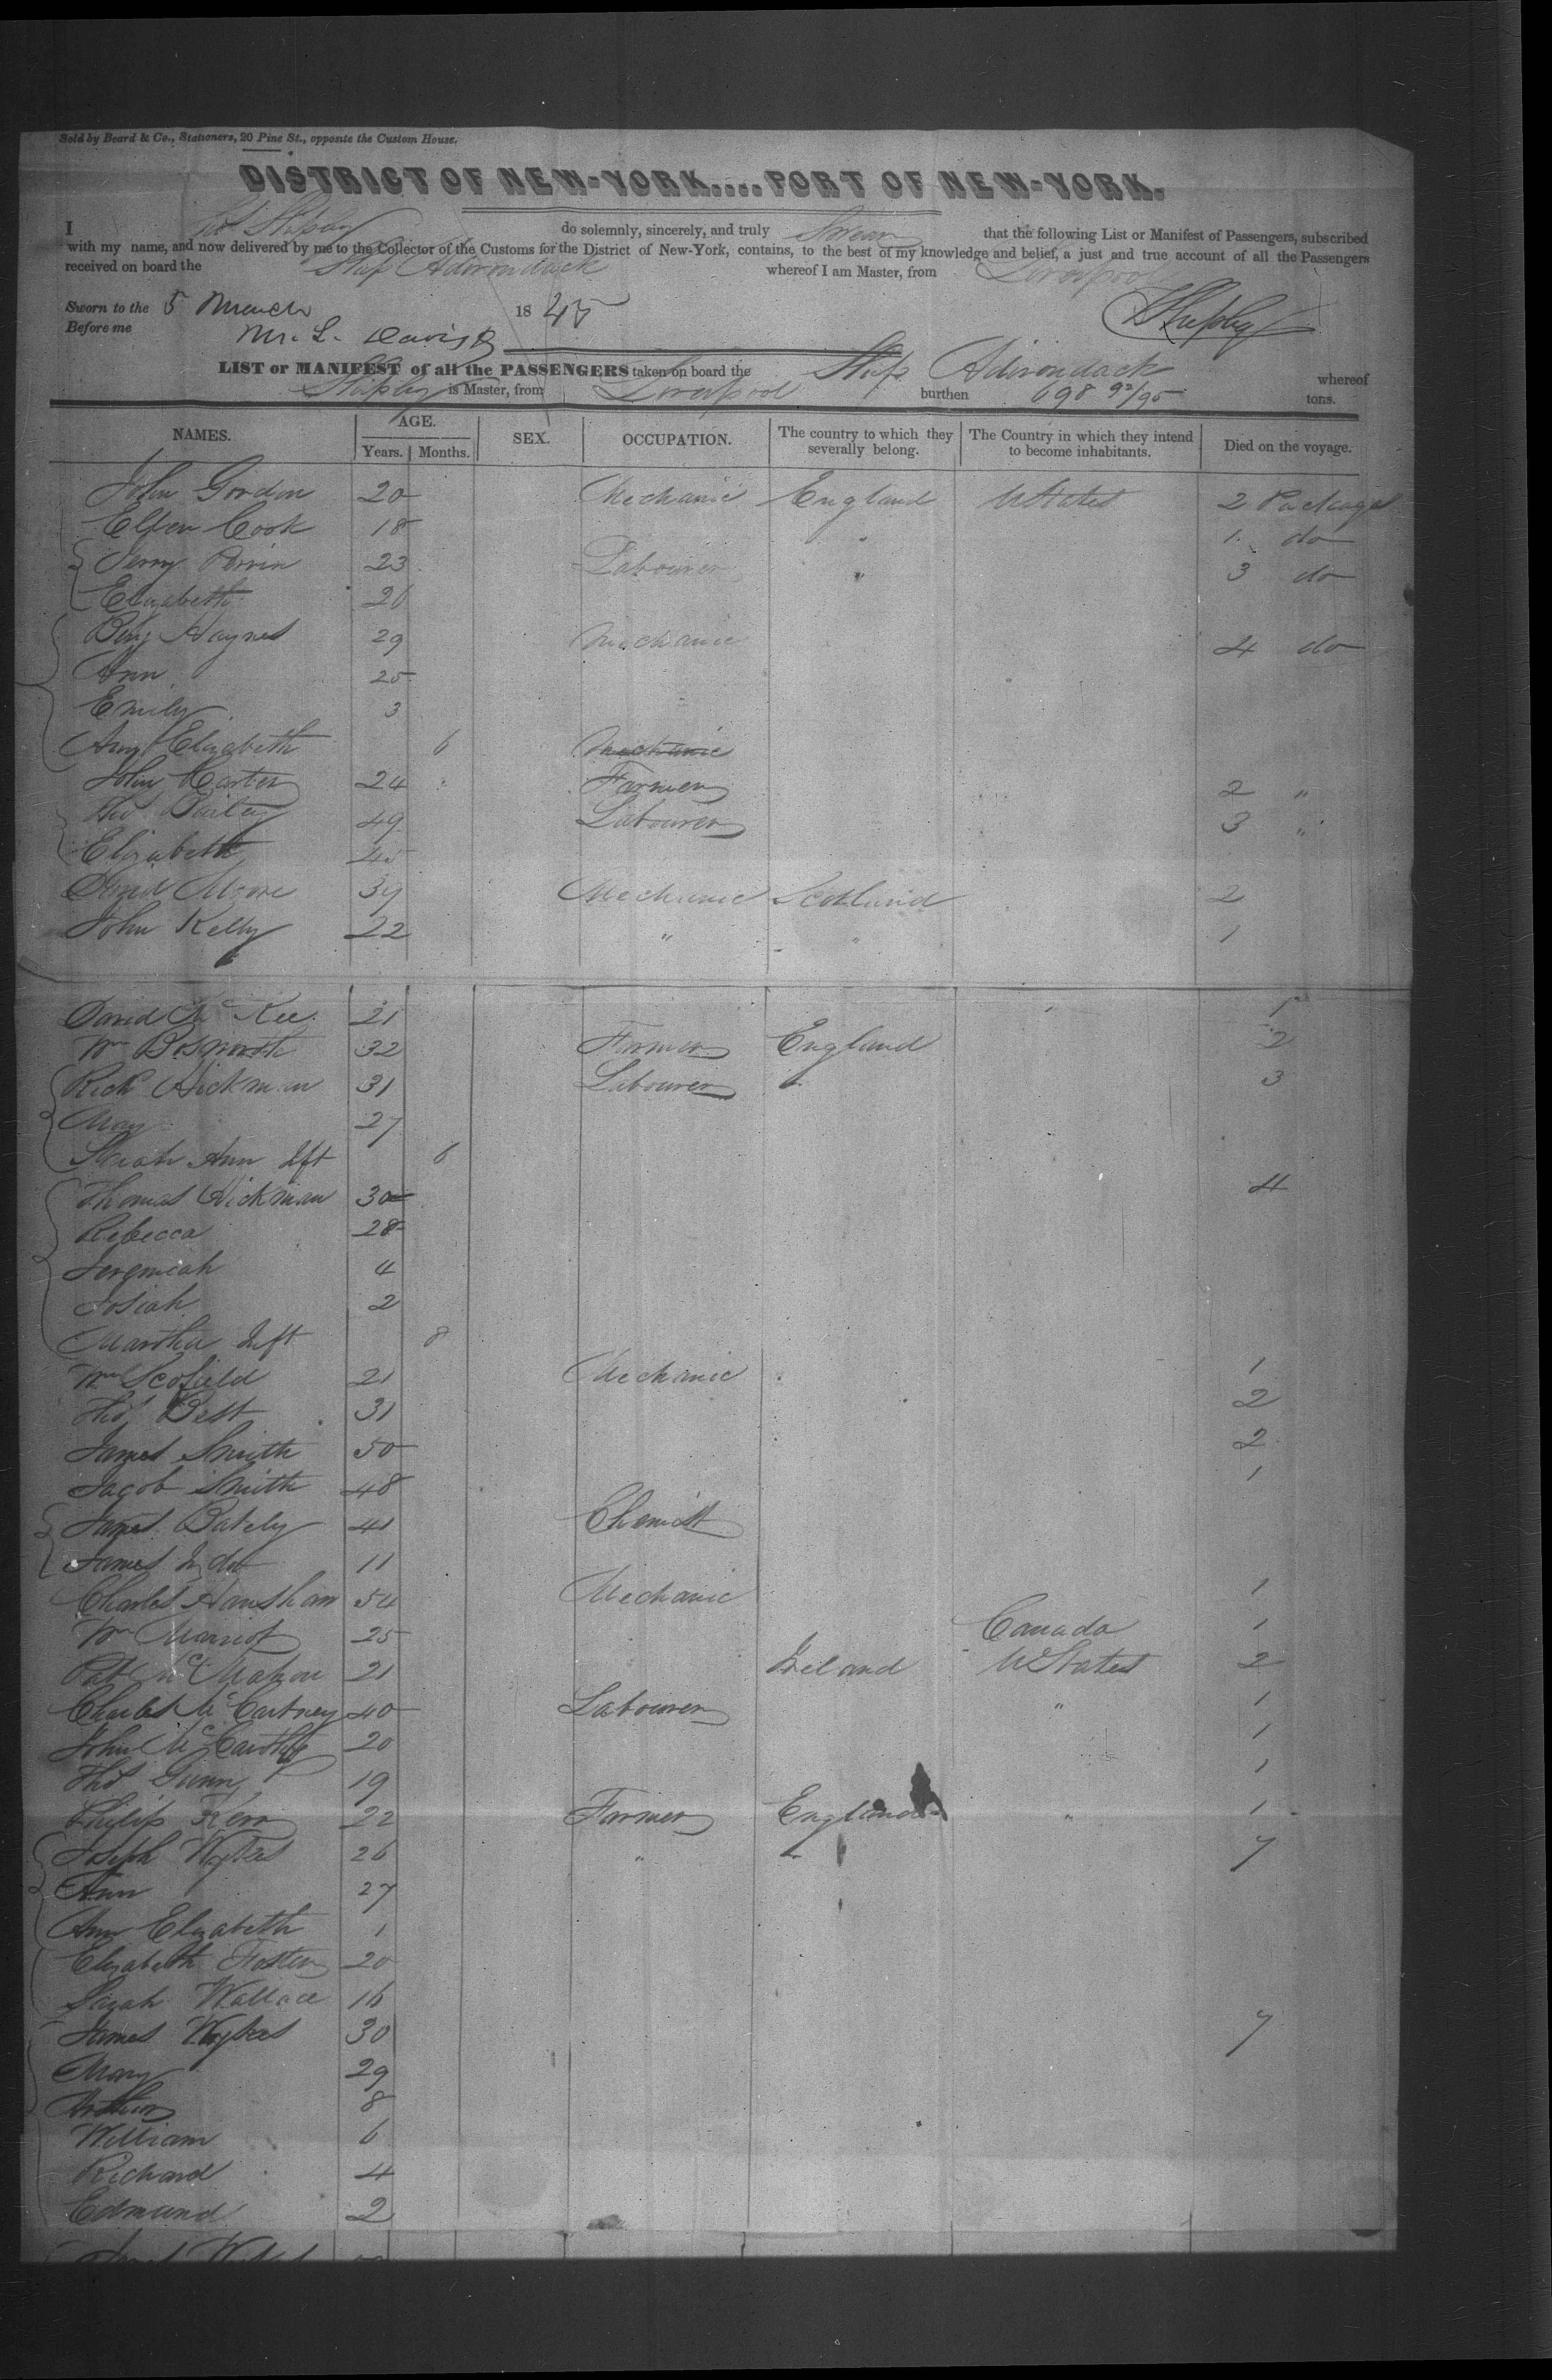 Sold by Beard & Co., Stationers, 20 Pine St., opposite the Custom House.
DISTRICT OF NEW-YORK....PORT OF NEW-YORK.
I Shipley do solemnly, sincerely, and truly Swear that the following List or Manifest of Passengers, subscribed
with my name, and now delivered by me to the Collector of the Customs for the District of New-York, contains, to the best of my knowledge and belief, a just and true account of all the Passengers
received on board the Ship Adirondack whereof I am Master, from Liverpool
Sworn to the 5 March 1845
Before me
LIST or MANIFEST of all the PASSENGERS taken on board the Ship Adirondack whereof
Shipley is Master, from Liverpool burthen 698 92/95 tons.
NAMES. AGE. SEX. OCCUPATION. The country to which they severally belong. The Country in which they intend to become inhabitants. Died on the voyage.
Years. Months.
John Gordon 20 Mechanic England U States 2 Package
Ellen Cook 18 " 1 do
Perrin 23 Labourer " 3 do
Elizabeth 26
Benj Haynes 29 Mechanic 4 do
Ann 25
Emily 3
Ann Elizabeth 6 Mechanic
John Carter 24 Farmer 2 "
Tho 49 Labourer 3 "
Elizabeth 45
David Moore 39 Mechanic Scotland 2
John Kelly 22 " " 1
David McKee 21 " 1
Wm Bosworth 32 Farmer England 2
Rich Hickman 31 Labourer " 3
Mary 27
Ann Ift 6
Thomas Hickman 30 4
Rebecca 28
Jeremiah 4
Josiah 2
Martha Inft 8
Wm Scofield 21 Mechanic 1
Thos Best 31 2
James Smith 50 2
Jacob Smith 48 1
James Bately 41 Chemist
James 11
Charles Hansham 54 Mechanic 1
Wm Marriot 25 Canada 1
Pat McMahon 21 Ireland U States 2
Charles McCartney 40 Labourer " 1
John McCarthy 20 1
Thos Gunn 19 1
Philip Kerr 22 Farmer England " 1
Joseph Wykes 26 " " 7
Ann 27
Ann Elizabeth 1
Elizabeth Foster 20
Sarah Wallace 16
James Wykes 30 7
Mary 29
Arthur 8
William 6
Richard 4
Edmund 2